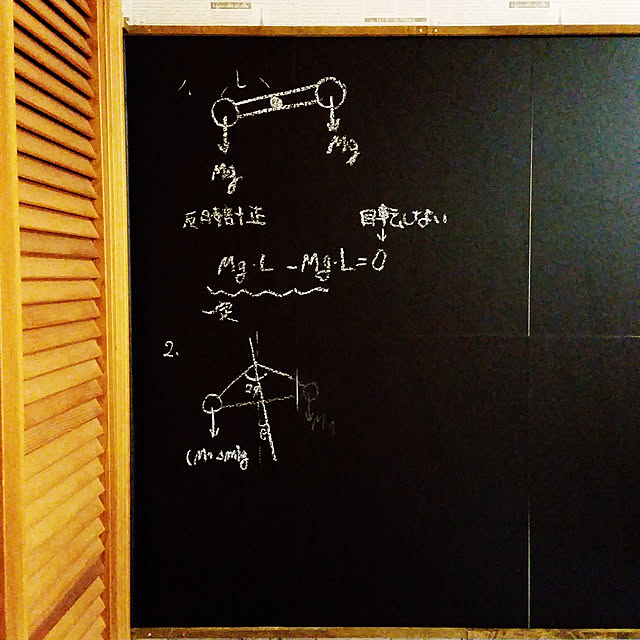 1. L
Mg Mg
反時計正 回転しない
Mg・L - Mg・L = 0
2.
2α
θ
(M+Δm)g Mg